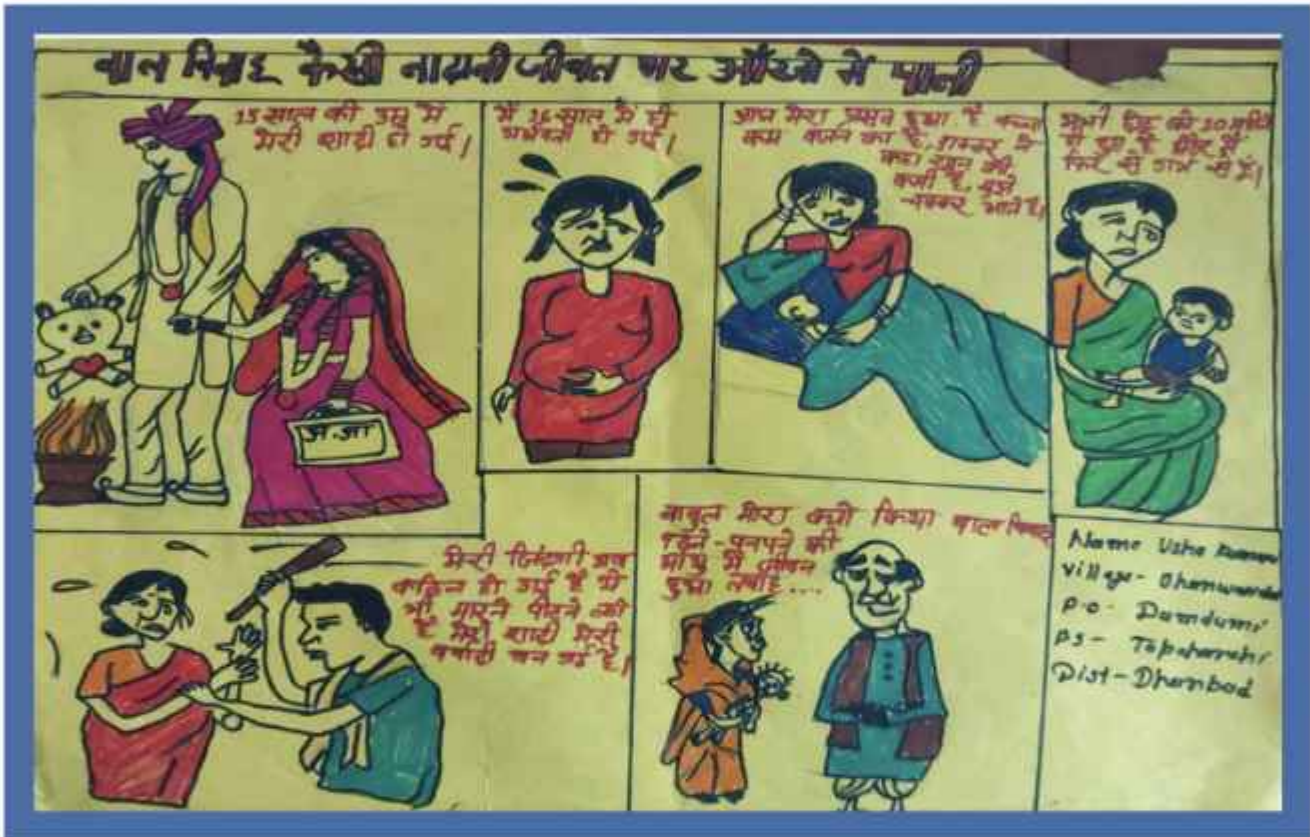 बाल विवाह कैसी नादानी जीवन भर आँखो में पानी
15 साल की उम्र में
मेरी शादी हो गई।
अ.आ
मैं 16 साल में ही
गर्भवती हो गई।
आज मेरा प्रसव हुआ है बच्चा
कम वजन का है, डाक्टर ने
कहा खून की
कमी है, मुझे
चक्कर आते हैं।
को 10 महिने
ही हुआ है और मैं
फिर से गर्भ से हूँ।
मेरी जिंदगी अब
कठिन हो गई है ये
भी मारने पीटने लगे
हैं मेरी शादी मेरी
बर्बादी बन गई है।
बाबुल मेरा क्यों किया बाल विवाह
पढ़ने-पनपने की
आयु में जीवन
हुआ तबाह...
Name Usha
Village-
P.O- Dumdumi
PS- Topchanchi
Dist- Dhanbad